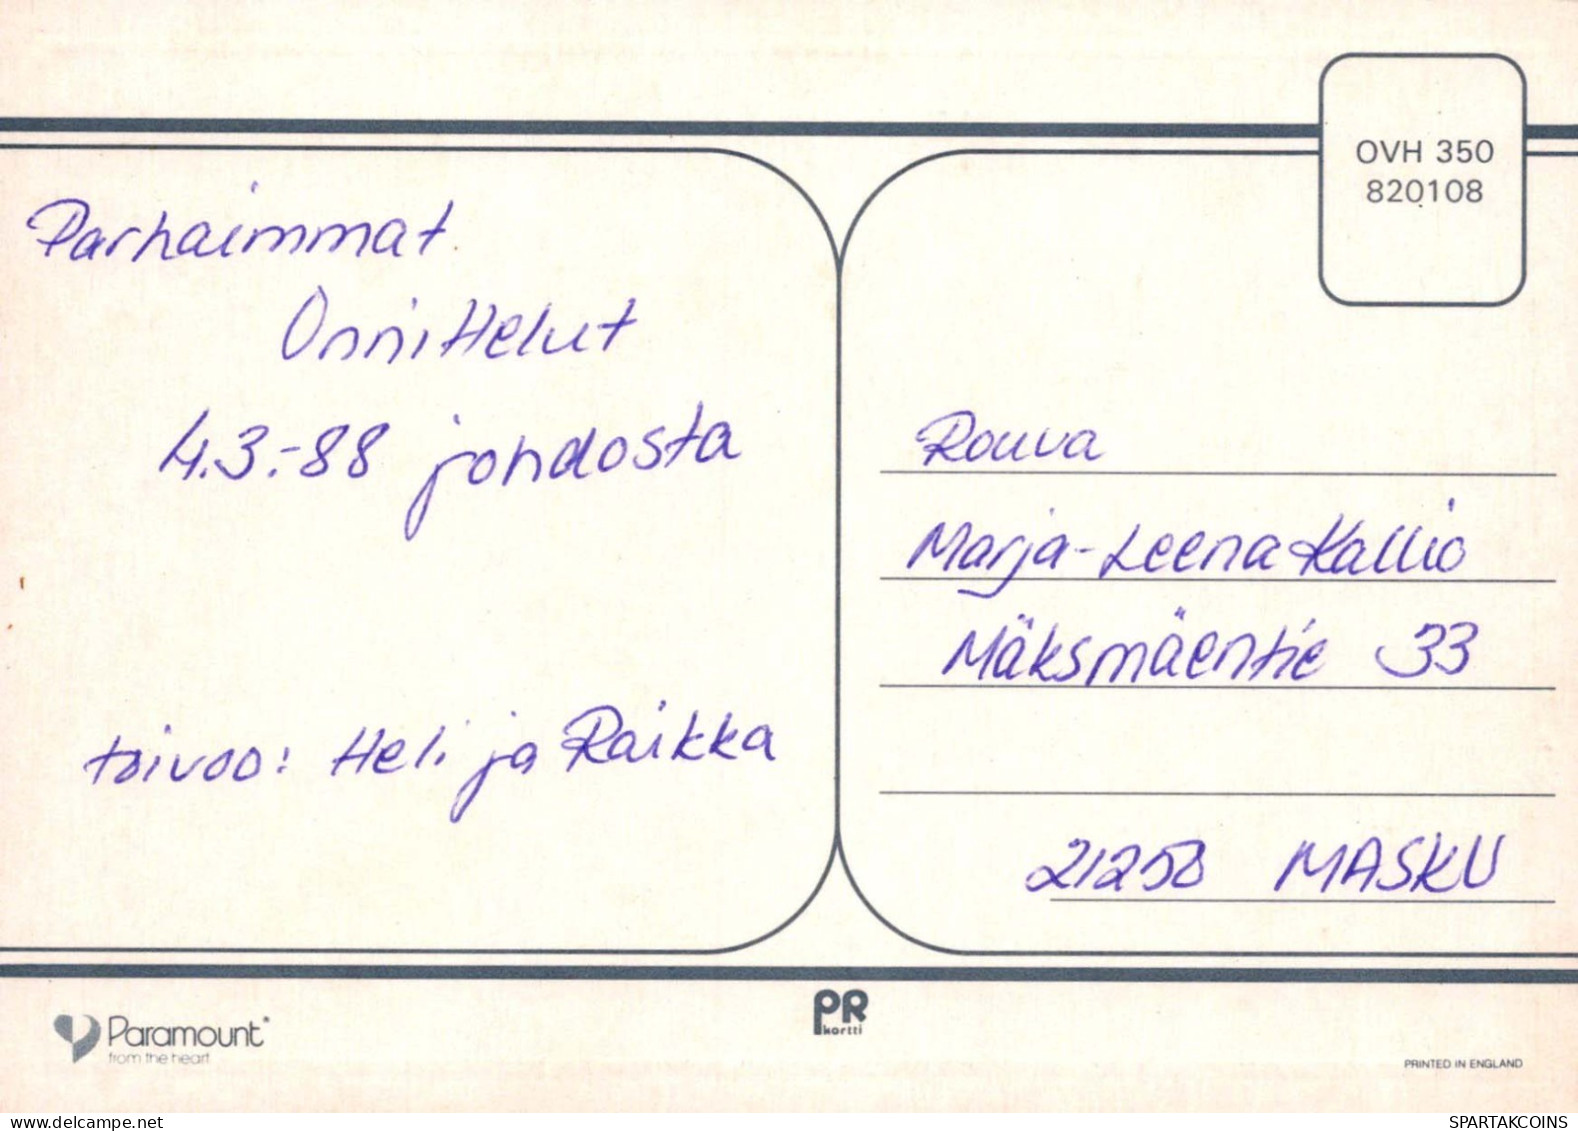 OVH 350
820108
Parhaimmat
Onnittelut
4.3.-88 johdosta
toivoo: Heli ja Raikka
Rouva
Marja-Leena Kallio
Mäksmäentie 33
21250 MASKU
Paramount
from the heart
PR
kortti
PRINTED IN ENGLAND
www.delcampe.net
SPARTAKCOINS